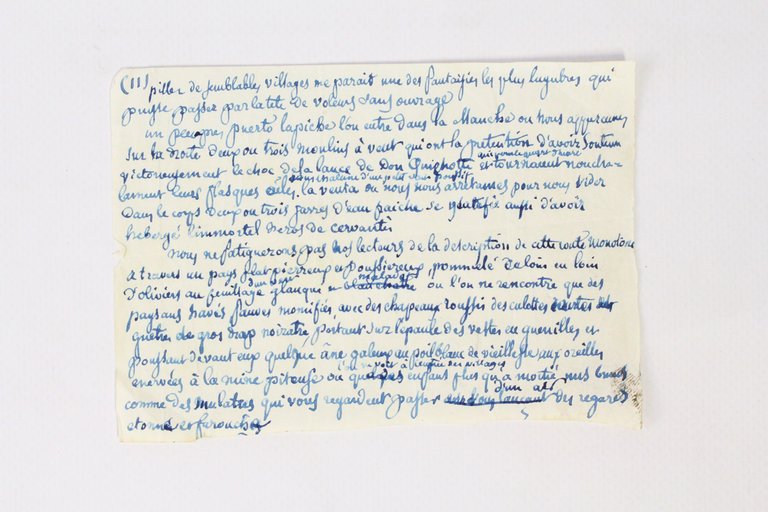 (11) piller de semblables villages me parait une des fantaisies les plus lugubres qui
puisse passer par la tete de voleurs sans ouvrage
un peu apres puerto lapiche l'on entre dans la Manche ou nous apperçumes
sur la droite deux ou trois moulins à vent qui ont la pretention d'avoir soutenu
victorieusement le choc de la lance de Don Quighotte et tournaient noncha-
lament leurs flasques ailes. la venta ou nous nous arretames pour nous vider
dans le corps deux ou trois jarres d'eau fraiche se glorifie aussi d'avoir
hebergé l'immortel heros de cervantès
nous ne fatiguerons pas nos lecteurs de la description de cette route monotone
a travers un pays plat pierreux et poussiereux, pommelé de loin en loin
d'oliviers au feuillage d'un vert glauque malade ou l'on ne rencontre que des
paysans havés fauves momifiés, avec des chapeaux roussis des culottes courtes
guetres de gros drap noiratre, portant sur l'epaule des vestes en guenilles et
poussant devant eux quelque âne galeux au poil blanc de vieillesse aux oreilles
enervées à la mine piteuse ou l'on ne voit à l'entrée des villages
que des enfans plus qu'a moitié nus bruns
comme des mulatres qui vous regardent passer d'un air
etonné et farouche